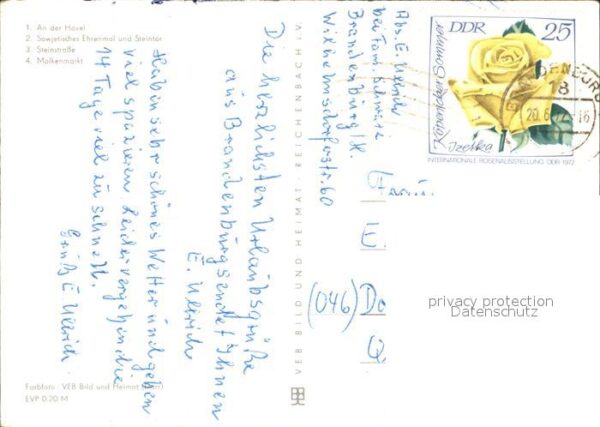 1. An der Havel
2. Sowjetisches Ehrenmal und Steintor
3. Steinstraße
4. Molkenmarkt
Die herzlichsten Urlaubsgrüße
aus Brandenburg sendet Ihnen
E. Ullrich
Haben sehr schönes Wetter und gehen
viel spazieren. Leider vergehen die
14 Tage viel zu schnell.
Gruß E Ullrich
Farbfoto: VEB Bild und Heimat
EVP 0.20 M
VEB BILD UND HEIMAT REICHENBACH i. V.
Abs. E. Ullrich
bei Fam.
Brandenburg/H.
Wilhelmsdorferstr. 60
Fam.
E.
(046) Do
Q
DDR 25
INTERNATIONALE ROSENAUSSTELLUNG DDR 1972
18
20.6.72-16
privacy protection
Datenschutz